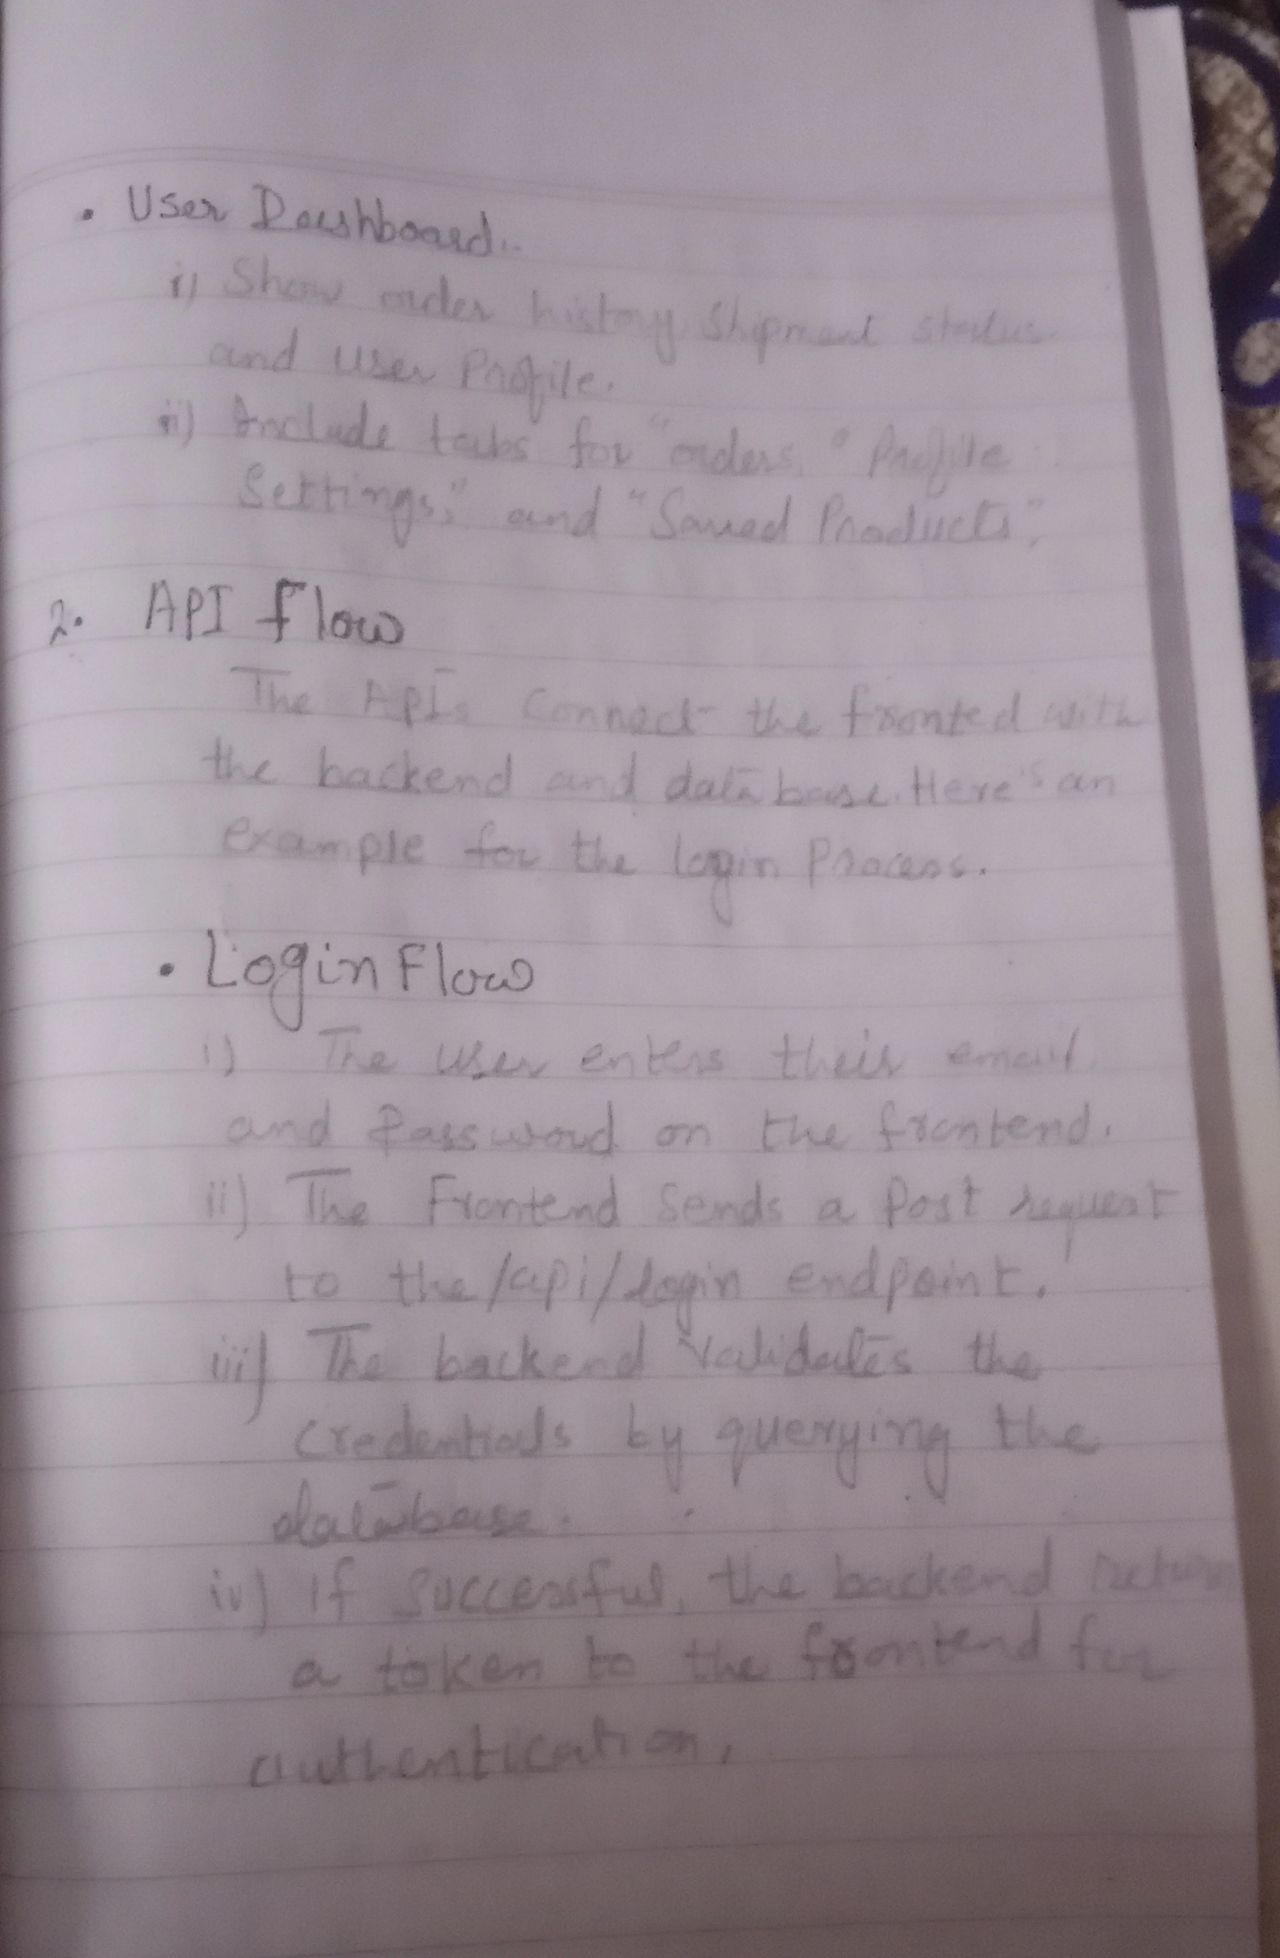 • User Dashboard..
i) Show order history, Shipment status
and user Profile.
ii) Include tabs for "orders," Profile
Settings," and "Saved Products",
2. API flow
The APIs Connect the fronted with
the backend and database. Here's an
example for the login Process.
• Login Flow
i) The user enters their email
and Password on the frontend.
ii) The Frontend Sends a Post request
to the /api/login endpoint.
iii) The backend validates the
credentials by querying the
database.
iv) If Successful, the backend return
a token to the frontend for
authentication,